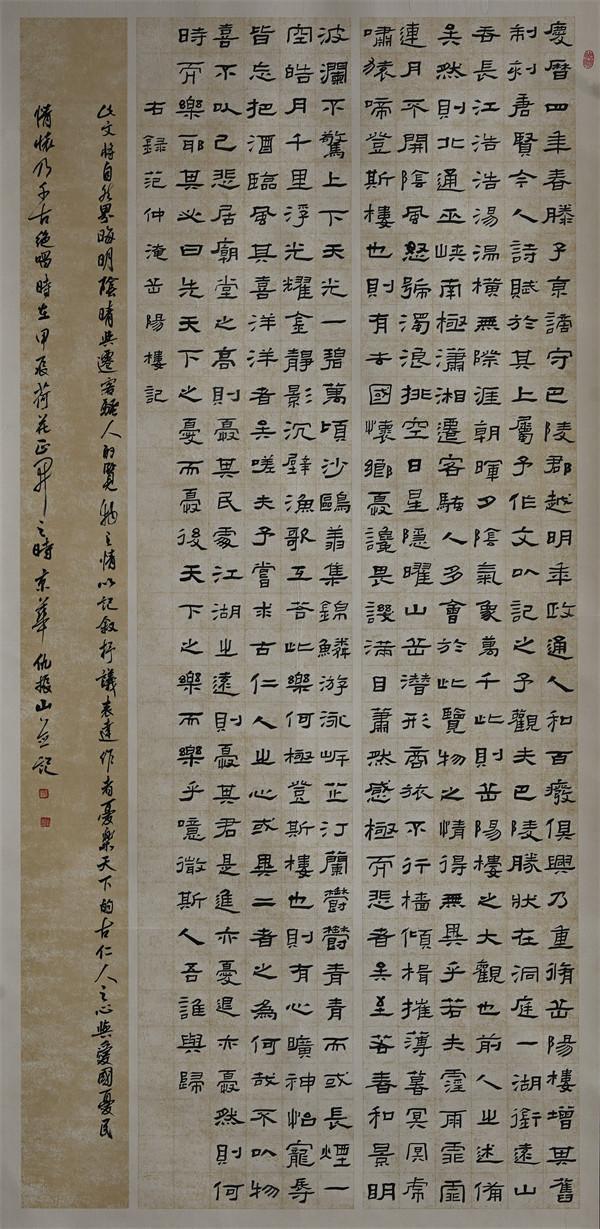 慶曆四年春滕子京謫守巴陵郡越明年政通人和百廢俱興乃重脩岳陽樓增其舊
制刻唐賢今人詩賦於其上屬予作文以記之予觀夫巴陵勝狀在洞庭一湖銜遠山
吞長江浩浩湯湯橫無際涯朝暉夕陰氣象萬千此則岳陽樓之大觀也前人之述備
矣然則北通巫峽南極瀟湘遷客騷人多會於此覽物之情得無異乎若夫霪雨霏霏
連月不開陰風怒號濁浪排空日星隱曜山岳潛形商旅不行檣傾楫摧薄暮冥冥虎
嘯猿啼登斯樓也則有去國懷鄉憂讒畏譏滿目蕭然感極而悲者矣至若春和景明
波瀾不驚上下天光一碧萬頃沙鷗翔集錦鱗游泳岸芷汀蘭鬱鬱青青而或長煙一
空皓月千里浮光耀金靜影沉璧漁歌互答此樂何極登斯樓也則有心曠神怡寵辱
皆忘把酒臨風其喜洋洋者矣嗟夫予嘗求古仁人之心或異二者之為何哉不以物
喜不以己悲居廟堂之高則憂其民處江湖之遠則憂其君是進亦憂退亦憂然則何
時而樂耶其必曰先天下之憂而憂後天下之樂而樂乎噫微斯人吾誰與歸
右錄范仲淹岳陽樓記
此文將自然界晦明陰晴與遷客騷人的覽物之情以記敘抒議表達作者憂樂天下的古仁人之心與愛國憂民
情懷乃千古絕唱時在甲辰荷花正开之時京華仇振山並記